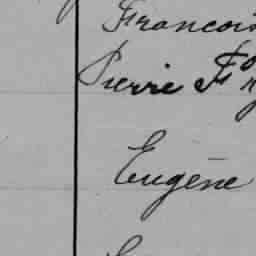 Francois
Pierre F
Eugène